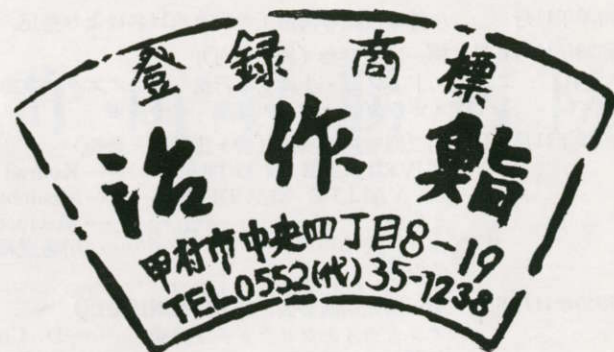 登録商標
治作鮨
甲府市中央四丁目8-19
TEL0552(代)35-7238